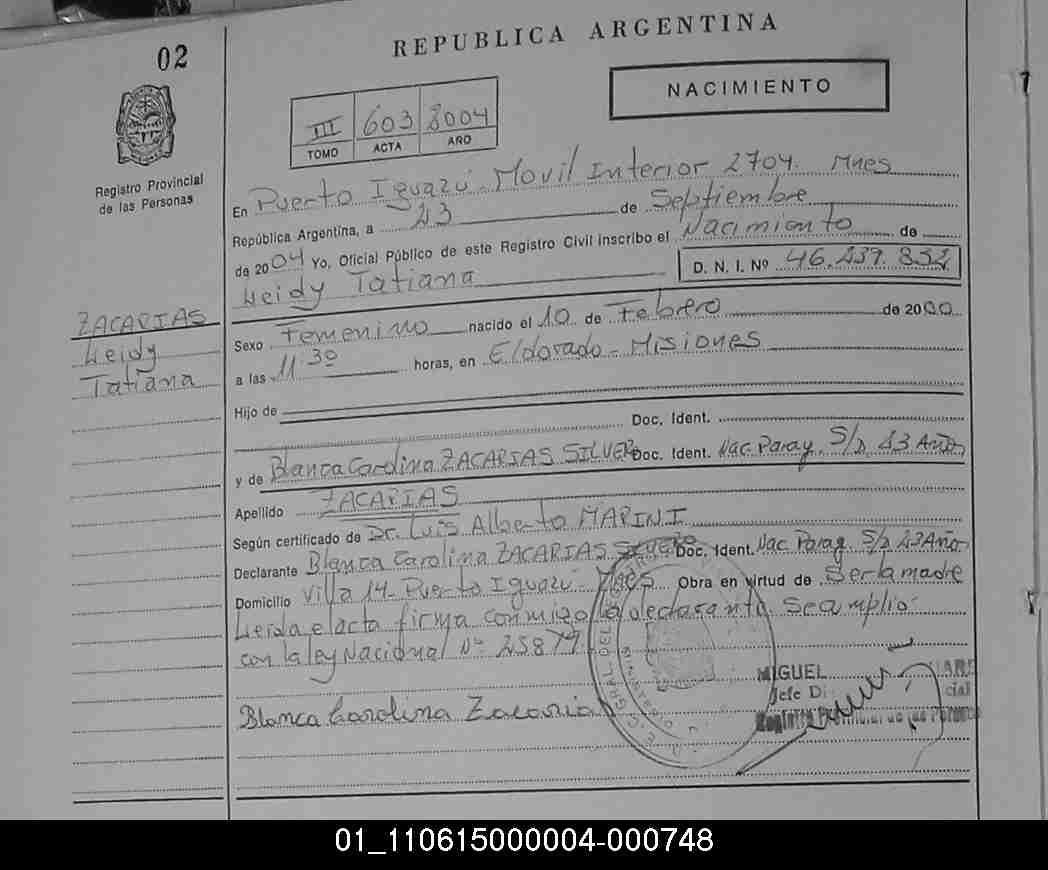 02
REPUBLICA ARGENTINA
NACIMIENTO
III 603 2004
TOMO ACTA AÑO
Registro Provincial
de las Personas
En Puerto Iguazú - Movil Interior 2704. Mnes
República Argentina, a 23 de Septiembre
de 2004 Yo, Oficial Público de este Registro Civil inscribo el Nacimiento de
Leidy Tatiana D. N. I. Nº 46.239.832
ZACARIAS
Leidy
Tatiana
Sexo Femenino nacido el 10 de Febrero de 2000
a las 11 30 horas, en Eldorado - Misiones
Hijo de
Doc. Ident.
y de Blanca Carolina ZACARIAS SILVERO Doc. Ident. Nac. Paray. S/D 23 Años
Apellido ZACARIAS
Según certificado de Dr. Luis Alberto MARINI
Declarante Blanca Carolina ZACARIAS SILVERO Doc. Ident. Nac Parag. S/D 23 Años
Domicilio Villa 14 - Puerto Iguazú - Mnes Obra en virtud de Ser la madre
Leida el acta firma conmigo la declarante. Se amplio
con la ley Nacional Nº 25879
MIGUEL
Jefe
Registro Provincial de las Personas
Blanca Carolina Zacarias
01_110615000004-000748